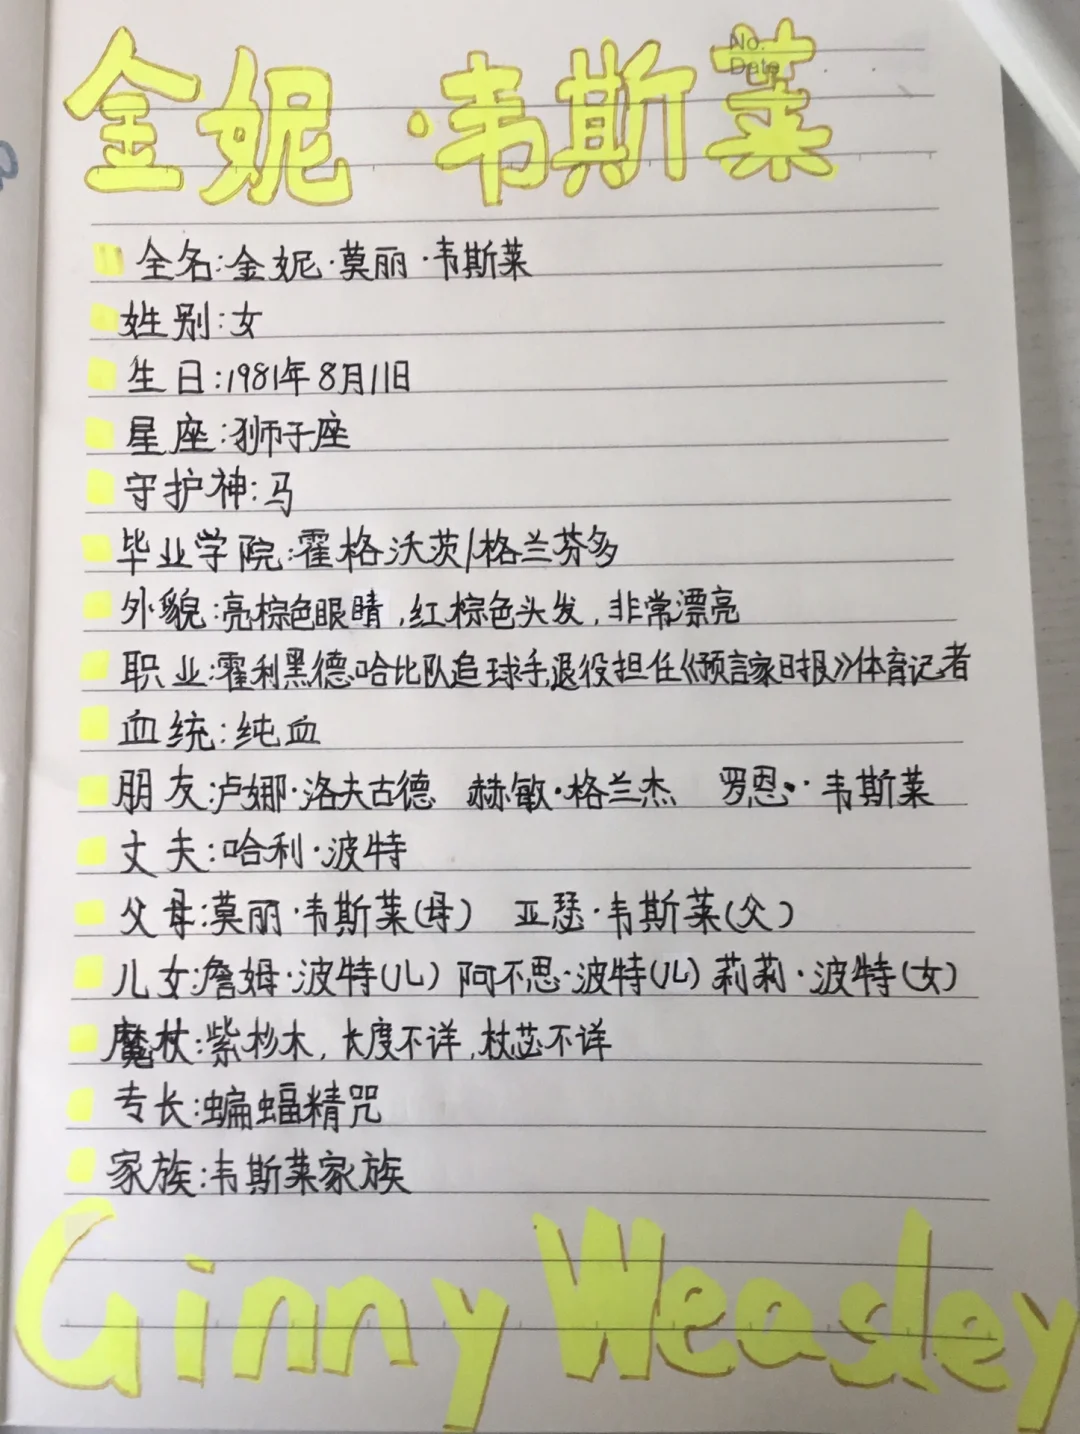 No.
Date
金妮·韦斯莱
全名:金妮·莫丽·韦斯莱
姓别:女
生日:1981年8月11日
星座:狮子座
守护神:马
毕业学院:霍格沃茨/格兰芬多
外貌:亮棕色眼睛,红棕色头发,非常漂亮
职业:霍利黑德哈比队追球手,退役担任《预言家日报》体育记者
血统:纯血
朋友:卢娜·洛夫古德 赫敏·格兰杰 罗恩·韦斯莱
丈夫:哈利·波特
父母:莫丽·韦斯莱(母) 亚瑟·韦斯莱(父)
儿女:詹姆·波特(儿) 阿不思·波特(儿) 莉莉·波特(女)
魔杖:紫杉木,长度不详,杖芯不详
专长:蝙蝠精咒
家族:韦斯莱家族
Ginny Weasley